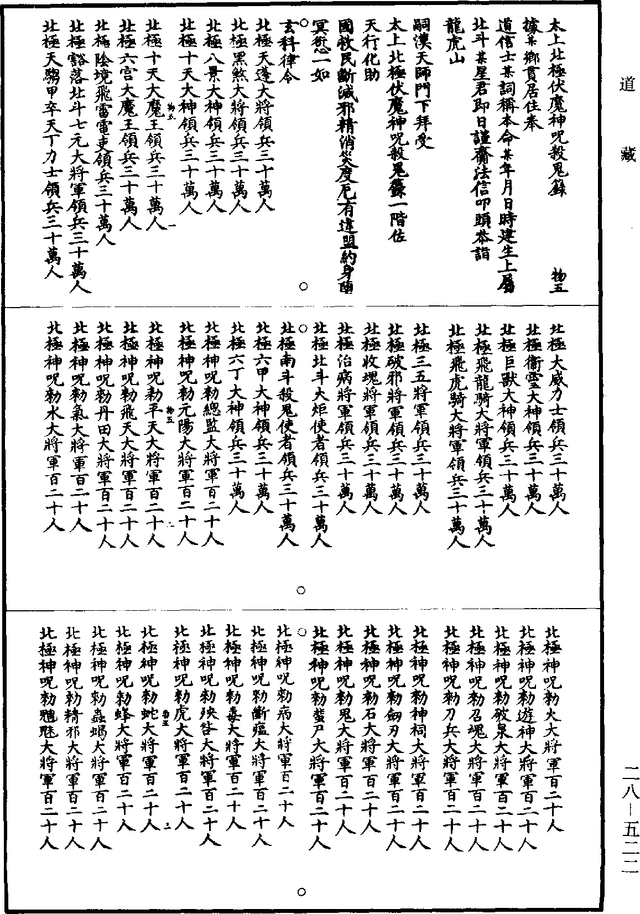 道藏
太上北極伏魔神呪殺鬼籙
物五
據某鄉貫居住奉
道信士某詞稱本命某年月日時建生上屬
北斗某星君即日謹齎法信叩頭恭詣
龍虎山
嗣漢天師門下拜受
太上北極伏魔神呪殺鬼籙一階佐
天行化助
國救民斷滅邪精消災度厄有違盟約身謝
冥愆一如
玄科律令
北極天蓬大將領兵三十萬人
北極黑煞大將領兵三十萬人
北極八景大神領兵三十萬人
北極十天大神領兵三十萬人
物五 一
北極十天大魔王領兵三十萬人
北極六宮大魔王領兵三十萬人
北極陰境飛雷電吏領兵三十萬人
北極豁落北斗七元大將軍領兵三十萬人
北極天騶甲卒天丁力士領兵三十萬人
北極大威力士領兵三十萬人
北極衝靈大神領兵三十萬人
北極巨獸大神領兵三十萬人
北極飛龍騎大將軍領兵三十萬人
北極飛虎騎大將軍領兵三十萬人
北極三五將軍領兵三十萬人
北極破邪將軍領兵三十萬人
北極收塊將軍領兵三十萬人
北極治病將軍領兵三十萬人
北極北斗大炬使者領兵三十萬人
北極南斗殺鬼使者領兵三十萬人
北極六甲大神領兵三十萬人
北極六丁大神領兵三十萬人
北極神呪勑總監大將軍百二十人
北極神呪勑元陽大將軍百二十人
物五 二
北極神呪勑平天大將軍百二十人
北極神呪勑飛天大將軍百二十人
北極神呪勑丹田大將軍百二十人
北極神呪勑氣大將軍百二十人
北極神呪勑水大將軍百二十人
北極神呪勑火大將軍百二十人
北極神呪勑遊神大將軍百二十人
北極神呪勑破泉大將軍百二十人
北極神呪勑召魂大將軍百二十人
北極神呪勑刀兵大將軍百二十人
北極神呪勑神祠大將軍百二十人
北極神呪勑劒刃大將軍百二十人
北極神呪勑石大將軍百二十人
北極神呪勑鬼大將軍百二十人
北極神呪勑蠻尸大將軍百二十人
北極神呪勑病大將軍百二十人
北極神呪勑斷瘟大將軍百二十人
北極神呪勑毒大將軍百二十人
北極神呪勑殃咎大將軍百二十人
北極神呪勑虎大將軍百二十人
物五 三
北極神呪勑蛇大將軍百二十人
北極神呪勑蜂大將軍百二十人
北極神呪勑蟲蝎大將軍百二十人
北極神呪勑精邪大將軍百二十人
北極神呪勑魍魅大將軍百二十人
二八—五二二